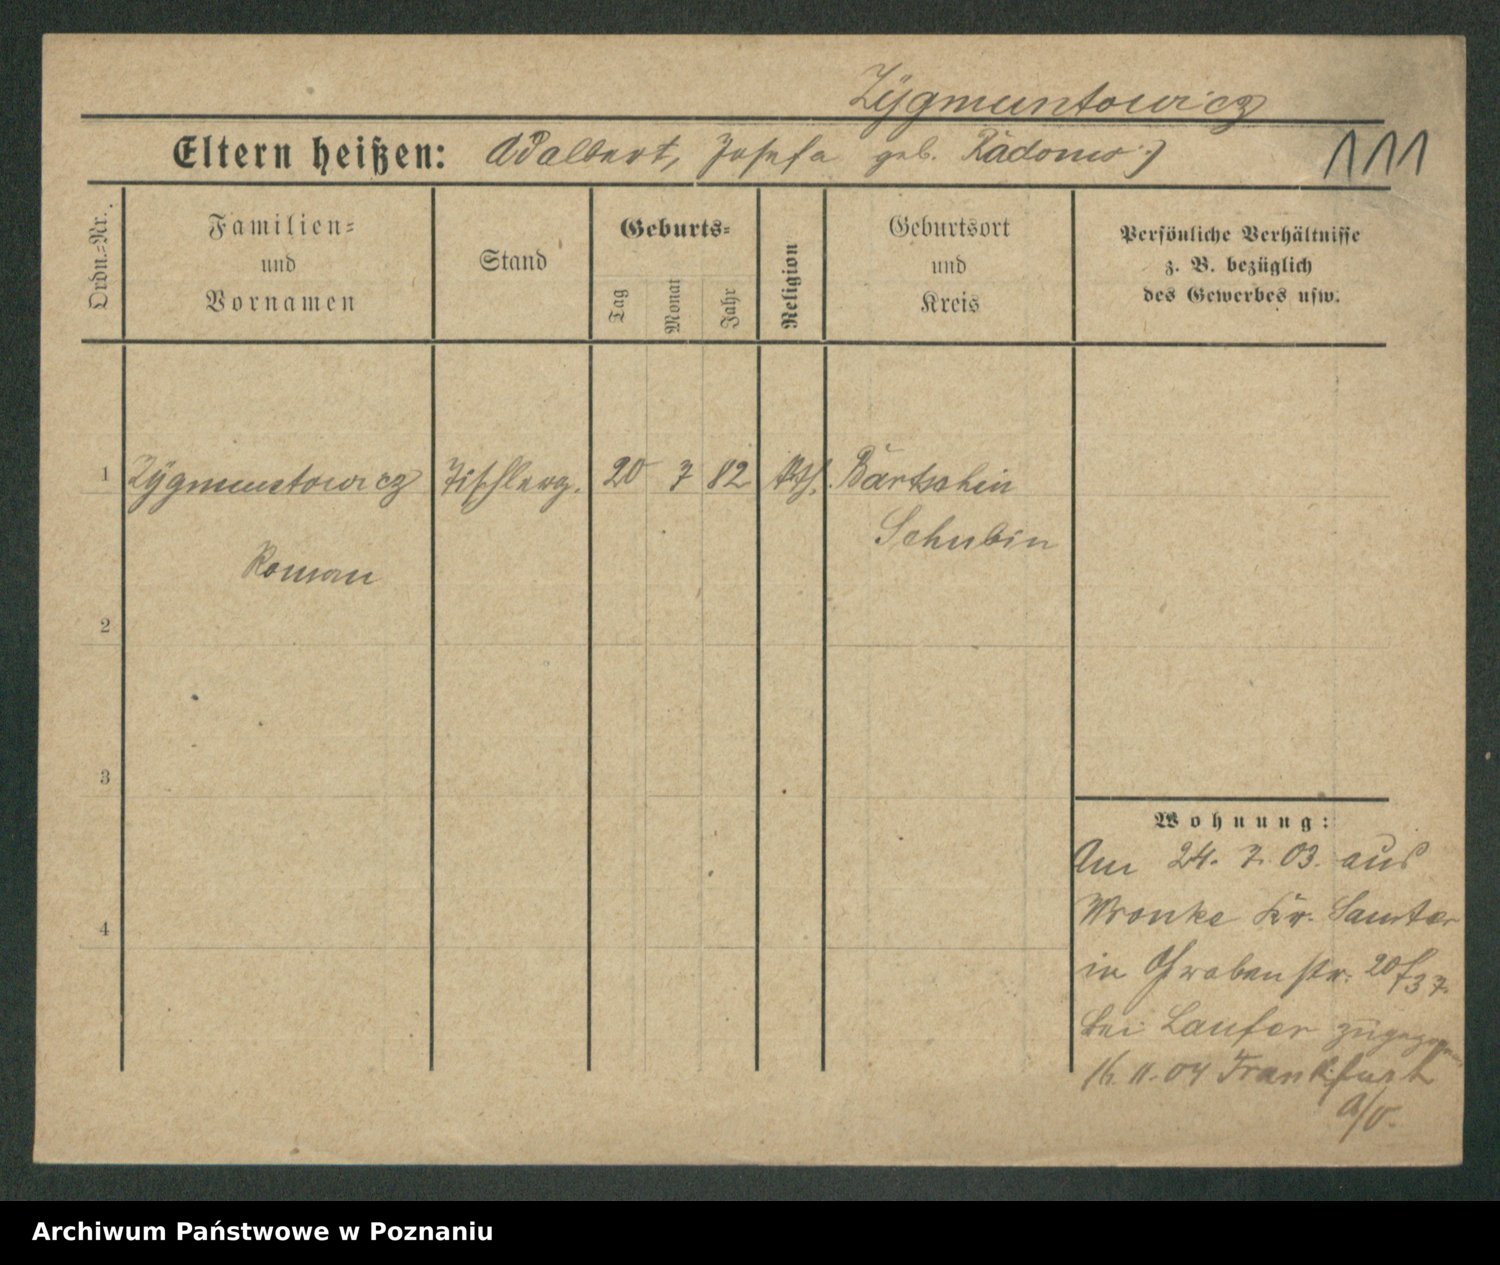 Zÿgmuntowicz
Eltern heißen: Adalbert, Josefa geb.
111
Ordn.-Nr.
Familien-
und
Vornamen
Stand
Geburts-
Tag
Monat
Jahr
Religion
Geburtsort
und
Kreis
Persönliche Verhältnisse
z. B. bezüglich
des Gewerbes usw.
1 Zÿgmuntowicz Tischlerg. 20 7 82 kth. Bartschin
Schubin
Roman
2
3
4
Wohnung:
Am 24. 7. 03. aus
Wronke Kr. Samter
in Grabenstr. 20
bei Laufer zugezogen
16. 11. 04 Frankfurt
a/O.
Archiwum Państwowe w Poznaniu